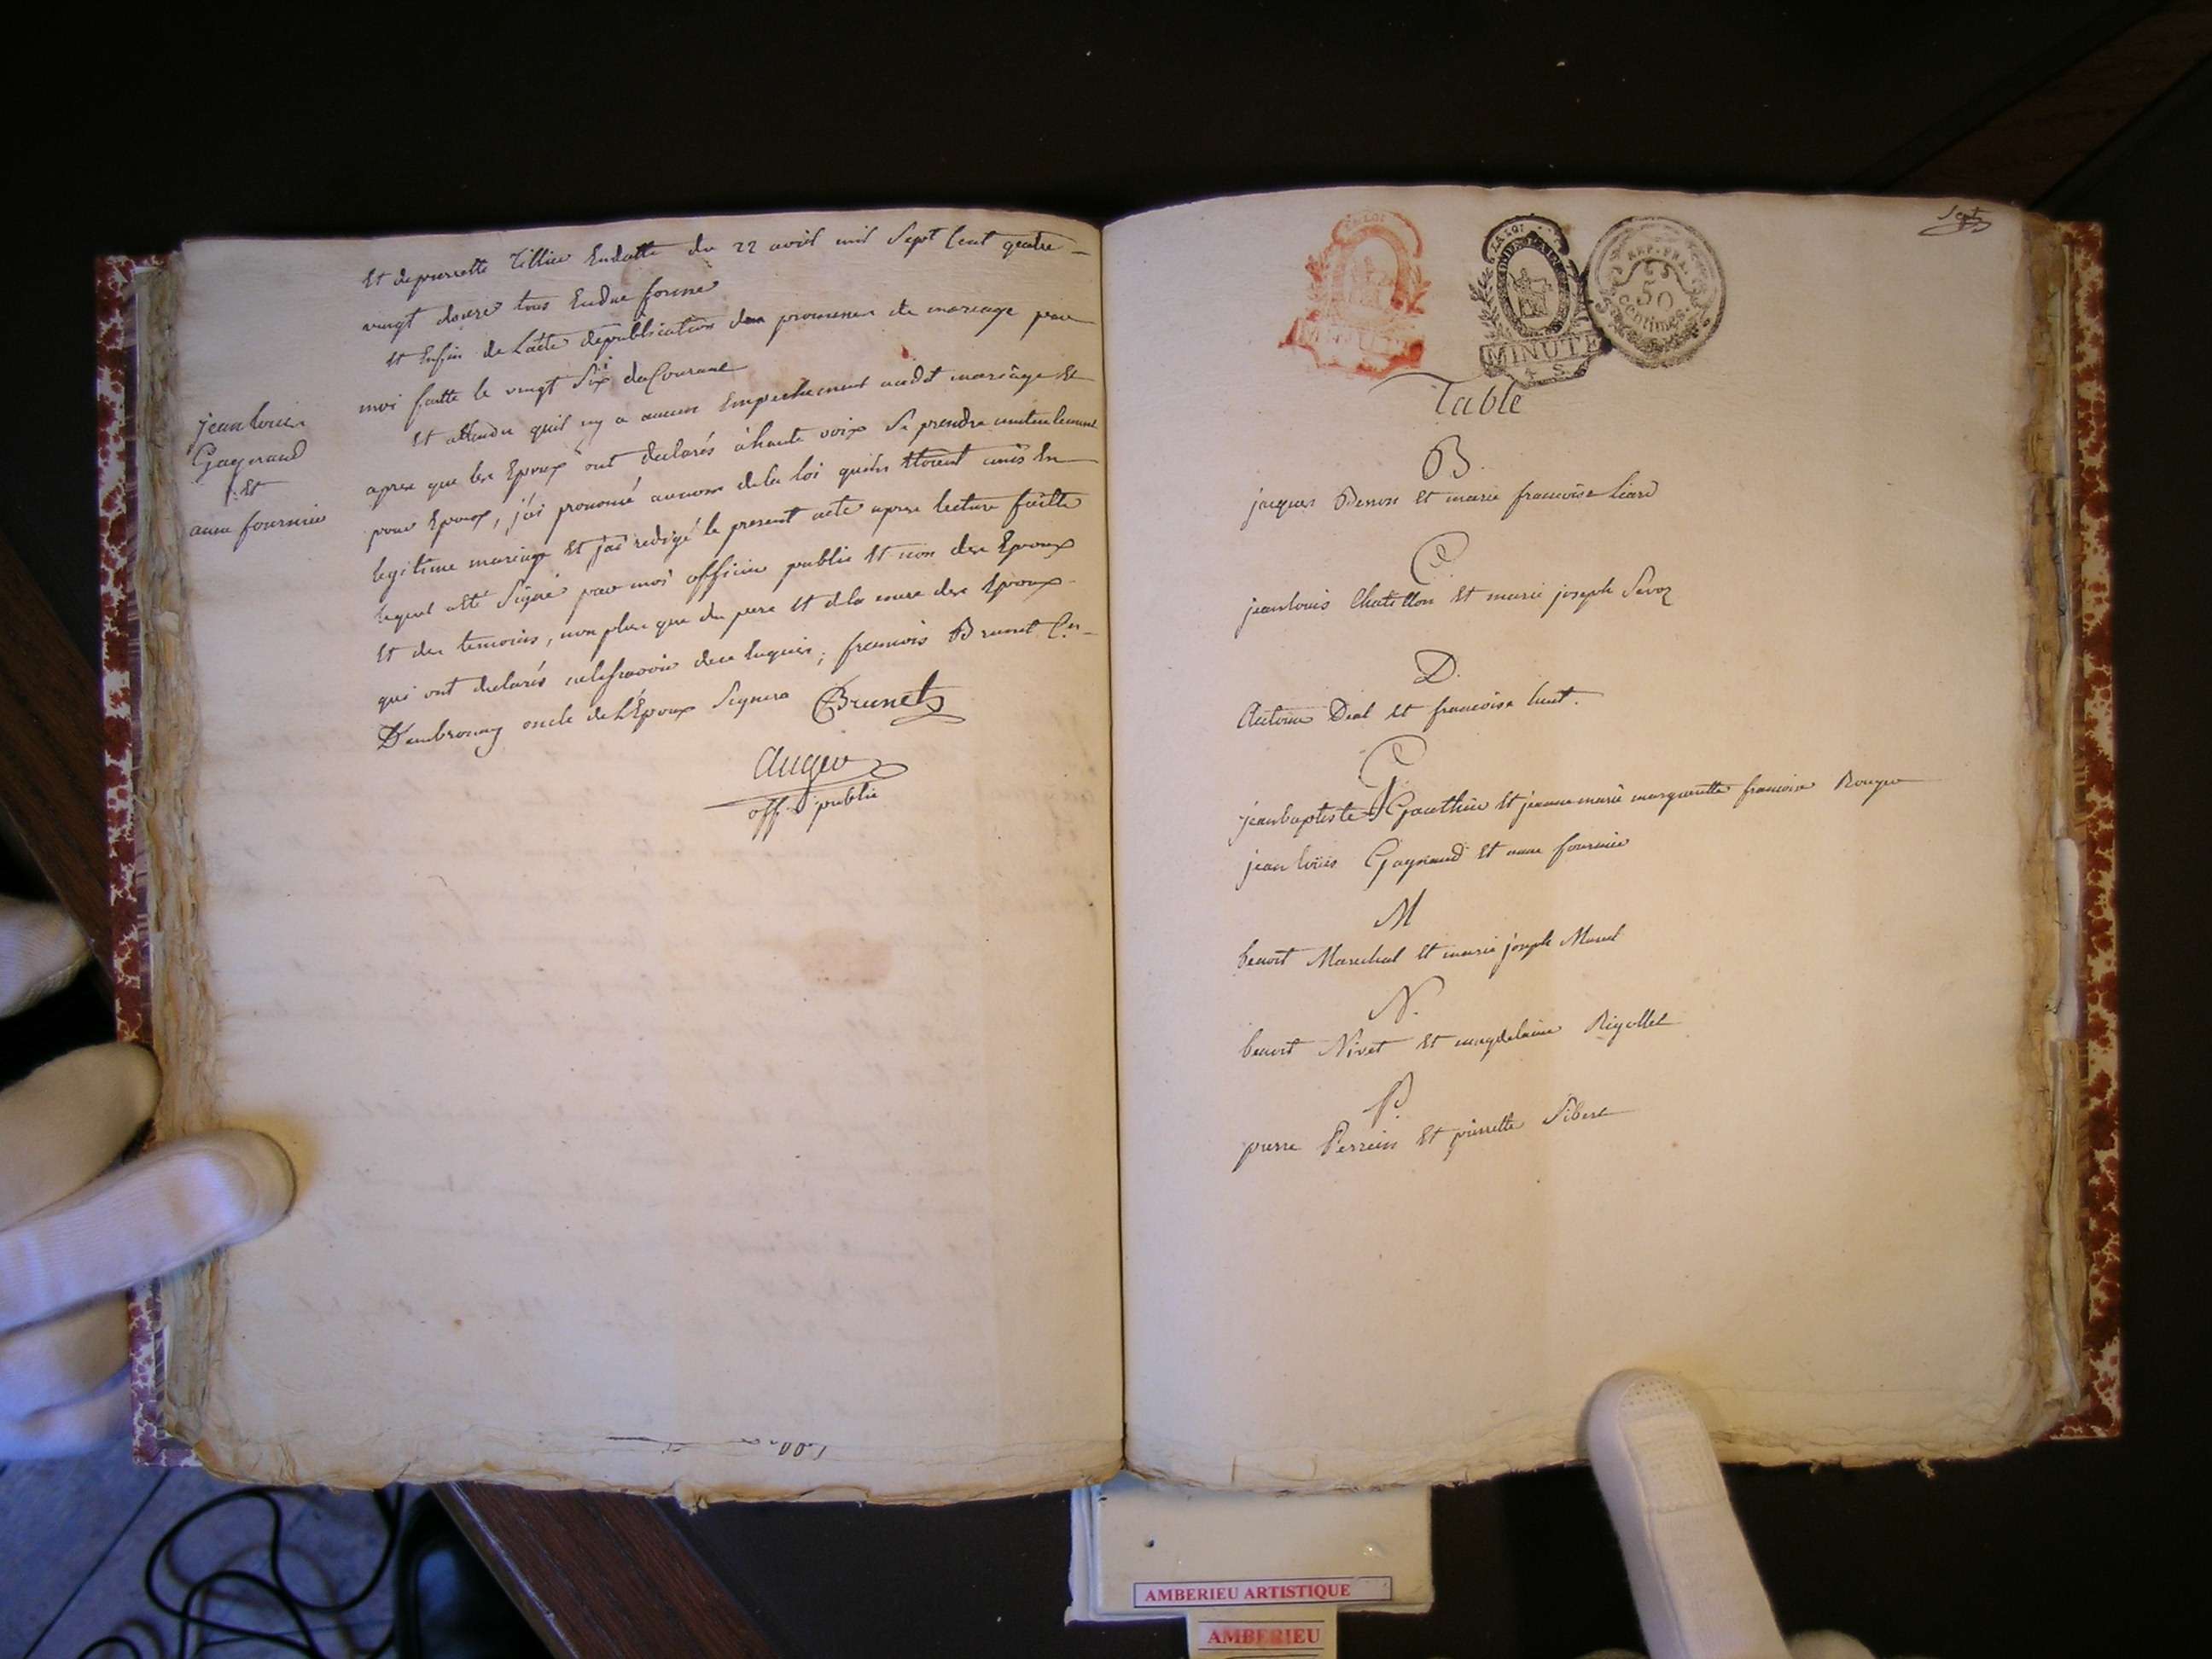 Et de pierrette Tillier En datte du 22 avril mil Sept Cent quatre-
vingt douze tous En due forme
Et Enfin de L'acte de publication des promesses de mariage par
moi faitte le vingt Six du Courant
Et attendu quil ny a aucun Empechement audit mariage Et
apres que les Epoux ont declarés à haute voix Se prendre mutuelement
pour Epoux, j'ai prononcé au nom de la loi quils Etoient unis En
legitime mariage Et j'ai redigé le present acte apres lecture faitte
lequel a Eté Signé par moi officier public Et non des Epoux
Et des temoins, non plus que du pere Et de la mere des Epoux
qui ont declarés ne le savoir de ce Enquis; francois Brunet
D'ambronay oncle de L'Epoux Signera Brunet
Auger
off. public
jean louis
Gaynaud
Et
anne fournier
LA LOI
MINUTE
4 S.
REP. FRA.
50
centimes.
Sept
Table
B.
jacques Benon Et marie francoise Liard
C
jean louis Chatillon Et marie joseph Savoz
D.
Antoine Dial Et francoise
G
jean baptiste Gauthier Et jeanne marie margueritte francoise Rouger
jean loüis Gaynaud Et anne fournier
M
benoit Marechal Et marie joseph
N.
benoit Nivet Et magdelaine Rigollet
P.
pierre Perrein Et pierrette Sibert
AMBERIEU ARTISTIQUE
AMBERIEU